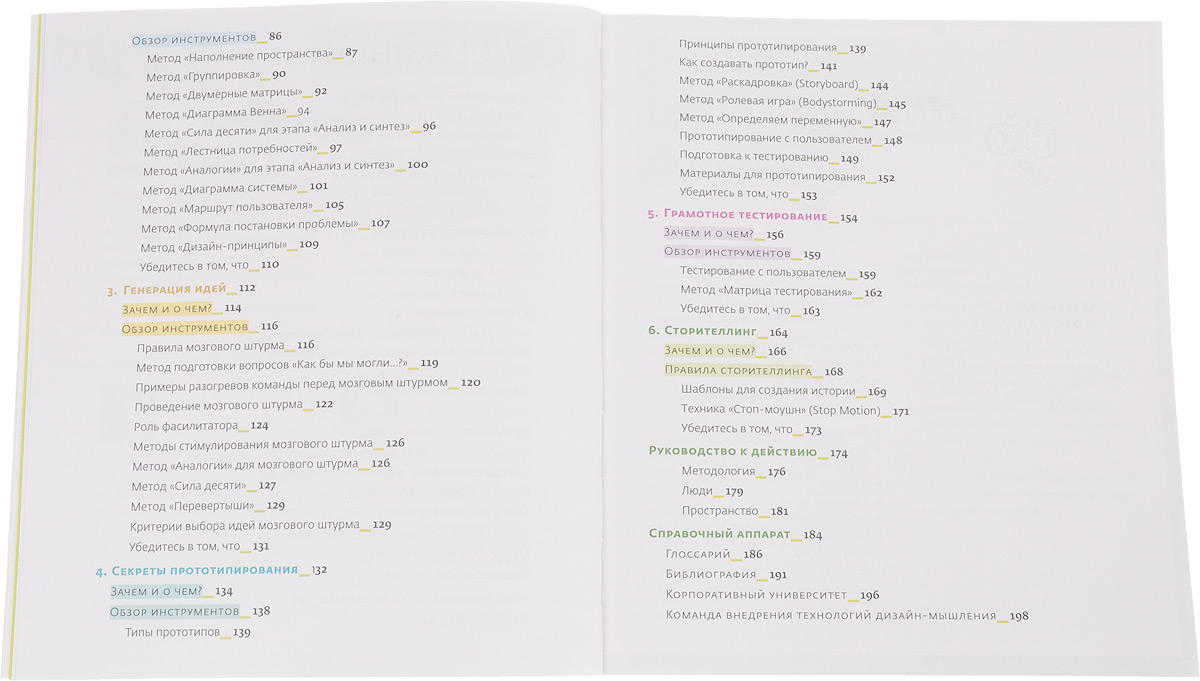 Обзор инструментов_86
Метод «Наполнение пространства»_87
Метод «Группировка»_90
Метод «Двумерные матрицы»_92
Метод «Диаграмма Венна»_94
Метод «Сила десяти» для этапа «Анализ и синтез»_96
Метод «Лестница потребностей»_97
Метод «Аналогии» для этапа «Анализ и синтез»_100
Метод «Диаграмма системы»_101
Метод «Маршрут пользователя»_105
Метод «Формула постановки проблемы»_107
Метод «Дизайн-принципы»_109
Убедитесь в том, что_110
3. Генерация идей_112
Зачем и о чем?_114
Обзор инструментов_116
Правила мозгового штурма_116
Метод подготовки вопросов «Как бы мы могли...?»_119
Примеры разогревов команды перед мозговым штурмом_120
Проведение мозгового штурма_122
Роль фасилитатора_124
Методы стимулирования мозгового штурма_126
Метод «Аналогии» для мозгового штурма_126
Метод «Сила десяти»_127
Метод «Перевертыши»_129
Критерии выбора идей мозгового штурма_129
Убедитесь в том, что_131
4. Секреты прототипирования_132
Зачем и о чем?_134
Обзор инструментов_138
Типы прототипов_139
Принципы прототипирования_139
Как создавать прототип?_141
Метод «Раскадровка» (Storyboard)_144
Метод «Ролевая игра» (Bodystorming)_145
Метод «Определяем переменную»_147
Прототипирование с пользователем_148
Подготовка к тестированию_149
Материалы для прототипирования_152
Убедитесь в том, что_153
5. Грамотное тестирование_154
Зачем и о чем?_156
Обзор инструментов_159
Тестирование с пользователем_159
Метод «Матрица тестирования»_162
Убедитесь в том, что_163
6. Сторителлинг_164
Зачем и о чем?_166
Правила сторителлинга_168
Шаблоны для создания истории_169
Техника «Стоп-моушн» (Stop Motion)_171
Убедитесь в том, что_173
Руководство к действию_174
Методология_176
Люди_179
Пространство_181
Справочный аппарат_184
Глоссарий_186
Библиография_191
Корпоративный университет_196
Команда внедрения технологий дизайн-мышления_198